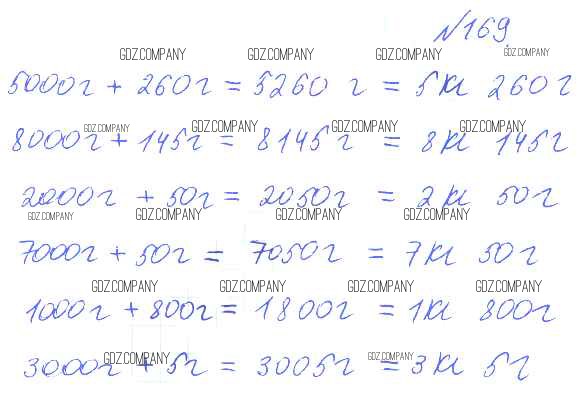 №169
GDZ.COMPANY GDZ.COMPANY GDZ.COMPANY GDZ.COMPANY
5000г + 260г = 5260 г = 5кг 260г
GDZ.COMPANY GDZ.COMPANY GDZ.COMPANY GDZ.COMPANY
8000г + 145г = 8145г = 8кг 145г
2000г + 50г = 2050г = 2кг 50г
GDZ.COMPANY GDZ.COMPANY GDZ.COMPANY GDZ.COMPANY
7000г + 50г = 7050г = 7кг 50г
GDZ.COMPANY GDZ.COMPANY GDZ.COMPANY GDZ.COMPANY
1000г + 800г = 1800г = 1кг 800г
GDZ.COMPANY GDZ.COMPANY
3000г + 5г = 3005г = 3кг 5г